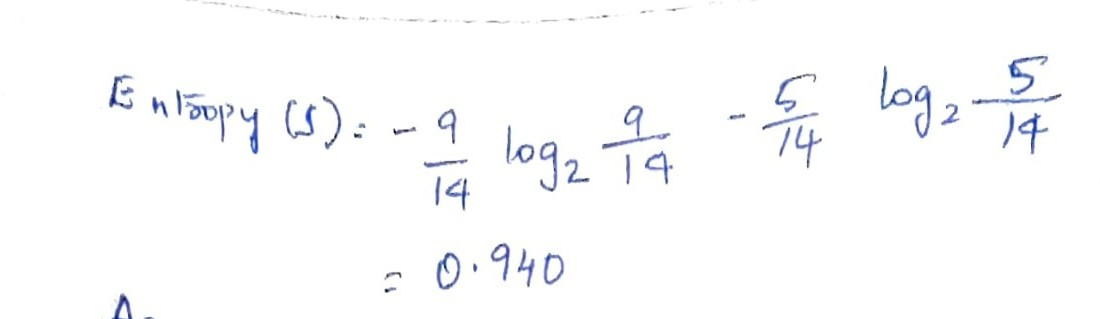 Entropy (S) = - 9/14 log₂ 9/14 - 5/14 log₂ 5/14
= 0.940